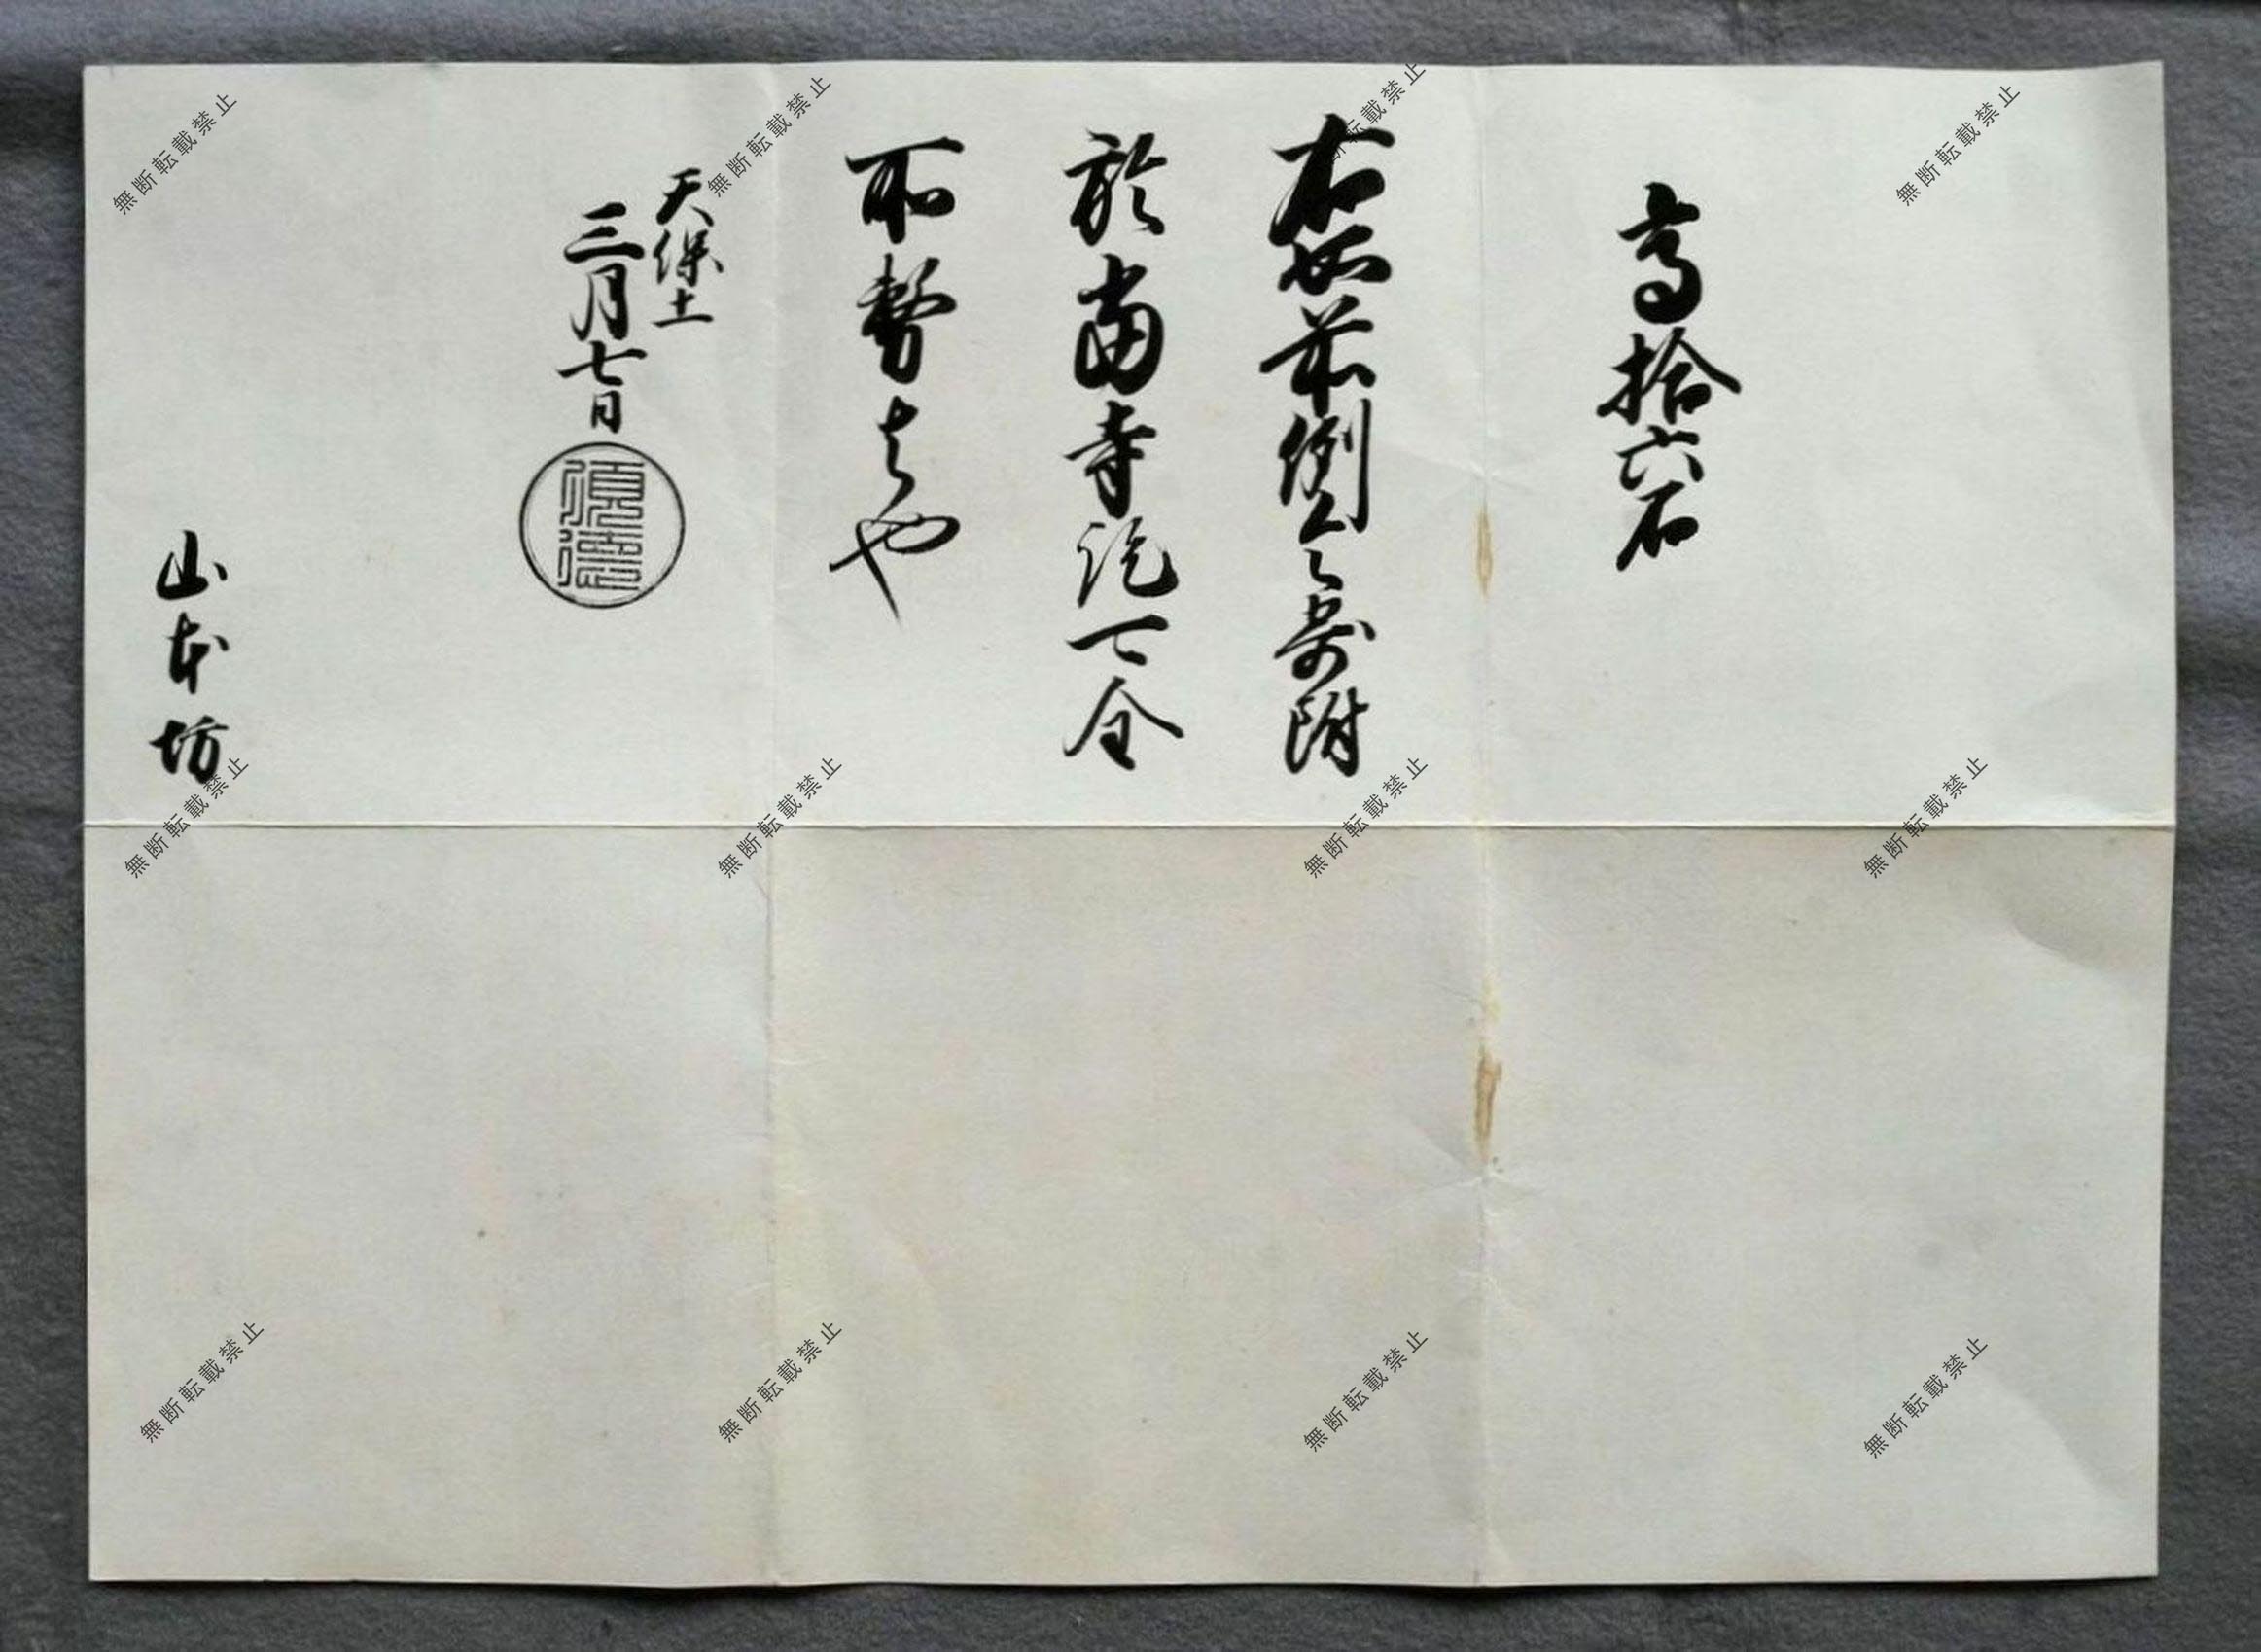 高拾六石
右如前例令寄附
於當寺訖可全
所務者也
天保十一
三月七日
山本坊
無断転載禁止
無断転載禁止
無断転載禁止
無断転載禁止
無断転載禁止
無断転載禁止
無断転載禁止
無断転載禁止
無断転載禁止
無断転載禁止
無断転載禁止
無断転載禁止